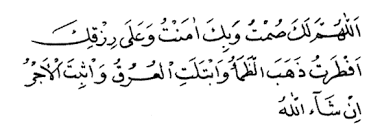 اَللّٰهُمَّ لَكَ صُمْتُ وَبِكَ اٰمَنْتُ وَعَلَى رِزْقِكَ
اَفْطَرْتُ ذَهَبَ الظَّمَأُ وَابْتَلَتِ الْعُرُقُ وَاثْبِتَ الْاَجْرُ
اِنْ شَآءَ اللهُ